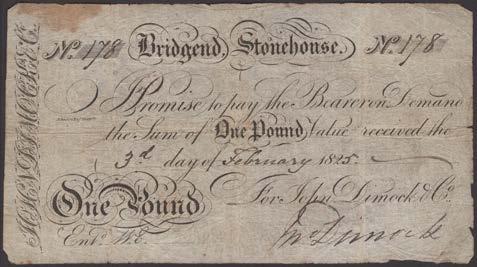 No. 178 Bridgend Stonehouse. No. 178
I Promise to pay the Bearer on Demand
the Sum of One Pound Value received the
3d day of February 1825.
One Pound For John Dimock & Co.
Entd. W.E. Jno Dimock